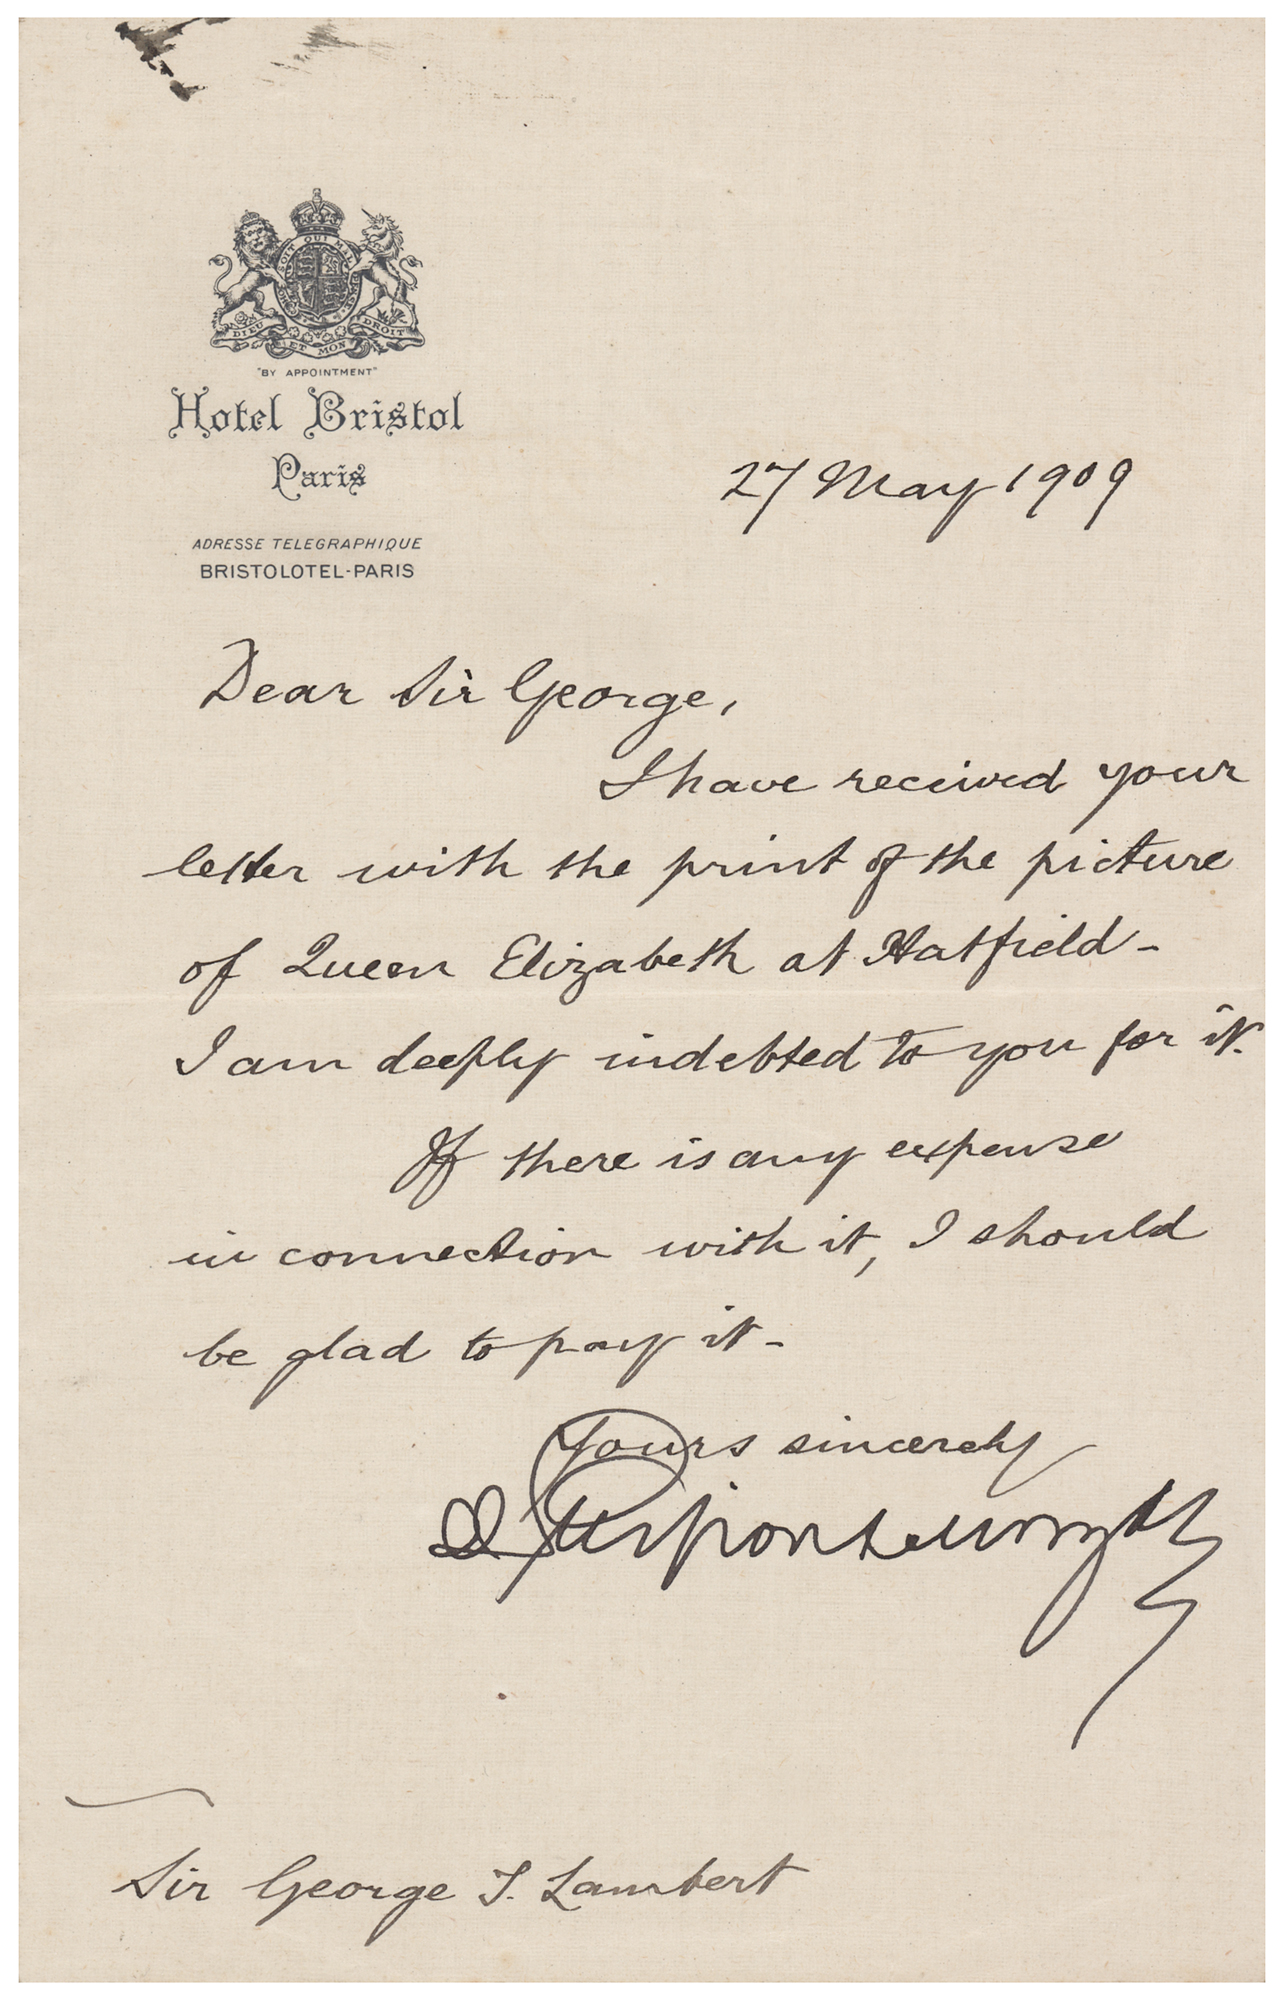 HONI SOIT QUI MAL Y PENSE
DIEU ET MON DROIT
"BY APPOINTMENT"
Hotel Bristol
Paris
ADRESSE TELEGRAPHIQUE
BRISTOLOTEL-PARIS
27 May 1909
Dear Sir George,
I have received your
letter with the print of the picture
of Queen Elizabeth at Hatfield-
I am deeply indebted to you for it.
If there is any expense
in connection with it, I should
be glad to pay it-
Yours sincerely
J. Pierpont Morgan
Sir George T. Lambert